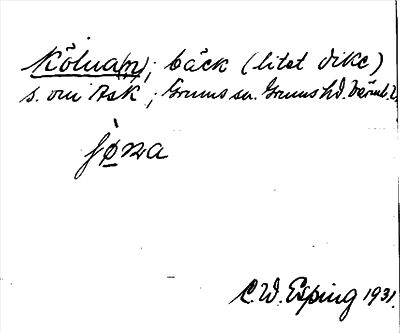 Kölna(n); bäck (litet dike)
s. om Ask; Grums sn. Grums hd. Värml. l.
C.W. Esping 1931.